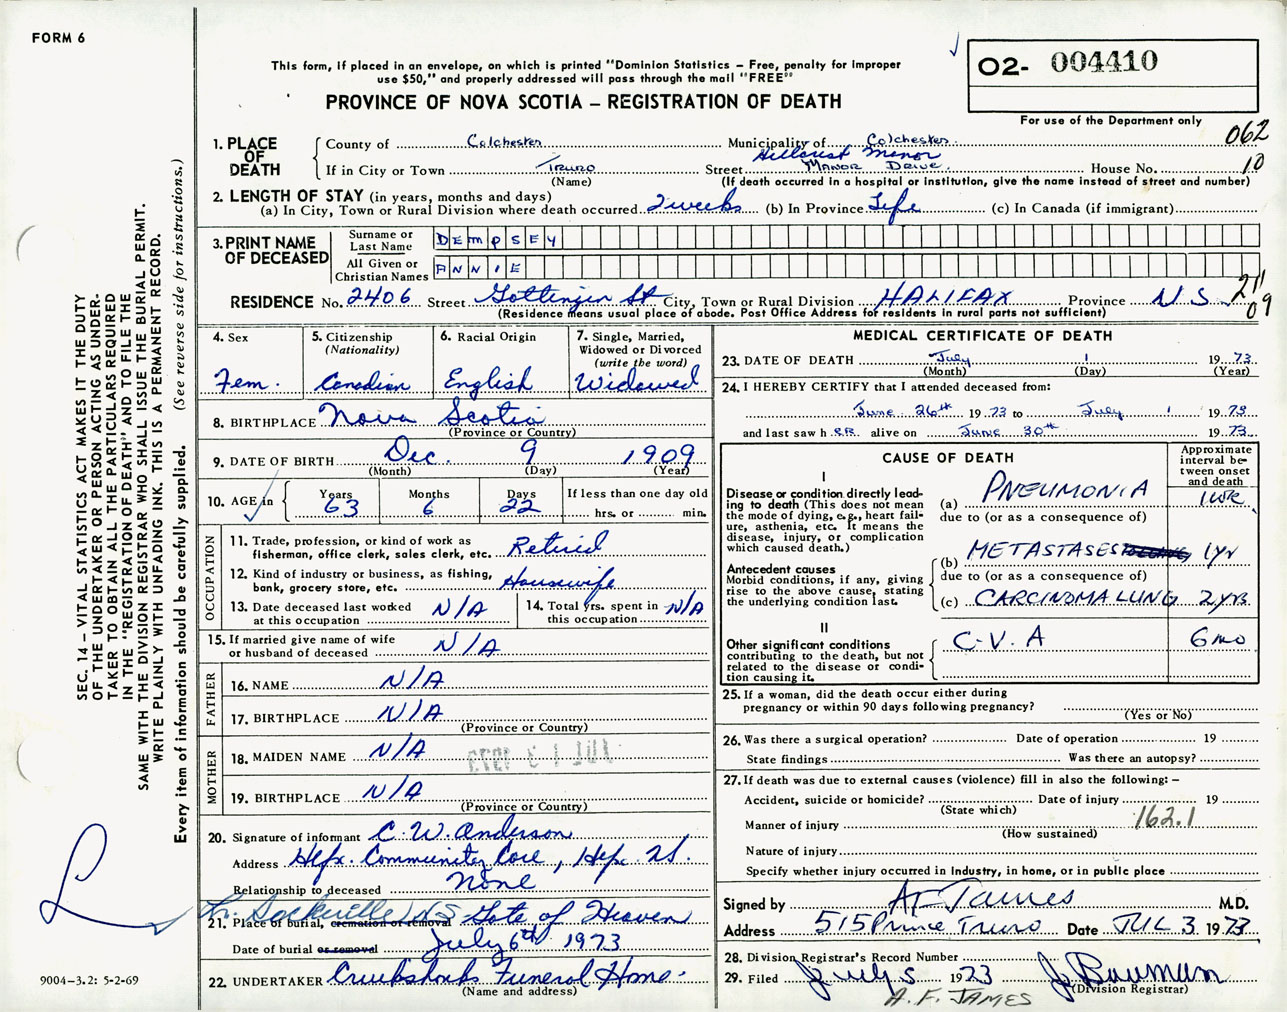 FORM 6
This form, if placed in an envelope, on which is printed "Dominion Statistics – Free, penalty for improper
use $50," and properly addressed will pass through the mail "FREE"
PROVINCE OF NOVA SCOTIA – REGISTRATION OF DEATH
O2- 004410
For use of the Department only
062
1. PLACE OF DEATH
County of Colchester Municipality of Colchester
Hillcrest Manor
If in City or Town Truro Street Manor Drive House No. 10
(Name) (If death occurred in a hospital or institution, give the name instead of street and number)
2. LENGTH OF STAY (in years, months and days)
(a) In City, Town or Rural Division where death occurred 2 weeks (b) In Province Life (c) In Canada (if immigrant)
3. PRINT NAME OF DECEASED
Surname or Last Name DEMPSEY
All Given or Christian Names ANNIE
RESIDENCE No. 2406 Street Gottingen St City, Town or Rural Division HALIFAX Province N.S.
211
09
(Residence means usual place of abode. Post Office Address for residents in rural parts not sufficient)
4. Sex
Fem.
5. Citizenship
(Nationality)
Canadian
6. Racial Origin
English
7. Single, Married,
Widowed or Divorced
(write the word)
Widowed
8. BIRTHPLACE Nova Scotia
(Province or Country)
9. DATE OF BIRTH Dec. 9 1909
(Month) (Day) (Year)
10. AGE in Years 63 Months 6 Days 22 If less than one day old
hrs. or min.
OCCUPATION
11. Trade, profession, or kind of work as
fisherman, office clerk, sales clerk, etc. Retired
12. Kind of industry or business, as fishing,
bank, grocery store, etc. Housewife
13. Date deceased last worked
at this occupation N/A
14. Total yrs. spent in
this occupation N/A
15. If married give name of wife
or husband of deceased N/A
FATHER
16. NAME N/A
17. BIRTHPLACE N/A
(Province or Country)
MOTHER
18. MAIDEN NAME N/A
JUL 13 1973
19. BIRTHPLACE N/A
(Province or Country)
20. Signature of informant C. W. Anderson
Address Hfx. Community Care, Hfx. N.S.
Relationship to deceased None
Lr. Sackville, N.S.
21. Place of burial, cremation or removal Gate of Heaven
Date of burial or removal July 6th 1973
22. UNDERTAKER Cruikshanks Funeral Home.
(Name and address)
MEDICAL CERTIFICATE OF DEATH
23. DATE OF DEATH July 1 1973
(Month) (Day) (Year)
24. I HEREBY CERTIFY that I attended deceased from:
June 26th 1973 to July 1 1973
and last saw h er alive on June 30th 1973
CAUSE OF DEATH
Approximate
interval be-
tween onset
and death
I
Disease or condition directly lead-
ing to death (This does not mean
the mode of dying, e.g., heart fail-
ure, asthenia, etc. It means the
disease, injury, or complication
which caused death.)
(a) PNEUMONIA 1 WK
due to (or as a consequence of)
Antecedent causes
Morbid conditions, if any, giving
rise to the above cause, stating
the underlying condition last.
(b) METASTASES 1 yr
due to (or as a consequence of)
(c) CARCINOMA LUNG 2 yrs
II
Other significant conditions
contributing to the death, but not
related to the disease or condi-
tion causing it.
C.V.A 6 mo
25. If a woman, did the death occur either during
pregnancy or within 90 days following pregnancy?
(Yes or No)
26. Was there a surgical operation? Date of operation 19
State findings Was there an autopsy?
27. If death was due to external causes (violence) fill in also the following: –
Accident, suicide or homicide? Date of injury 19
(State which)
Manner of injury 162.1
(How sustained)
Nature of injury
Specify whether injury occurred in industry, in home, or in public place
Signed by A F James M.D.
Address 515 Prince Truro Date JUL 3 1973
28. Division Registrar's Record Number
29. Filed July 5 1973 J. Bauman
(Division Registrar)
A. F. JAMES
SEC. 14 – VITAL STATISTICS ACT MAKES IT THE DUTY
OF THE UNDERTAKER OR PERSON ACTING AS UNDER-
TAKER TO OBTAIN ALL THE PARTICULARS REQUIRED
IN THE "REGISTRATION OF DEATH" AND TO FILE THE
SAME WITH THE DIVISION REGISTRAR WHO SHALL ISSUE THE BURIAL PERMIT.
WRITE PLAINLY WITH UNFADING INK. THIS IS A PERMANENT RECORD.
Every item of information should be carefully supplied. (See reverse side for instructions.)
L
9004-3.2: 5-2-69